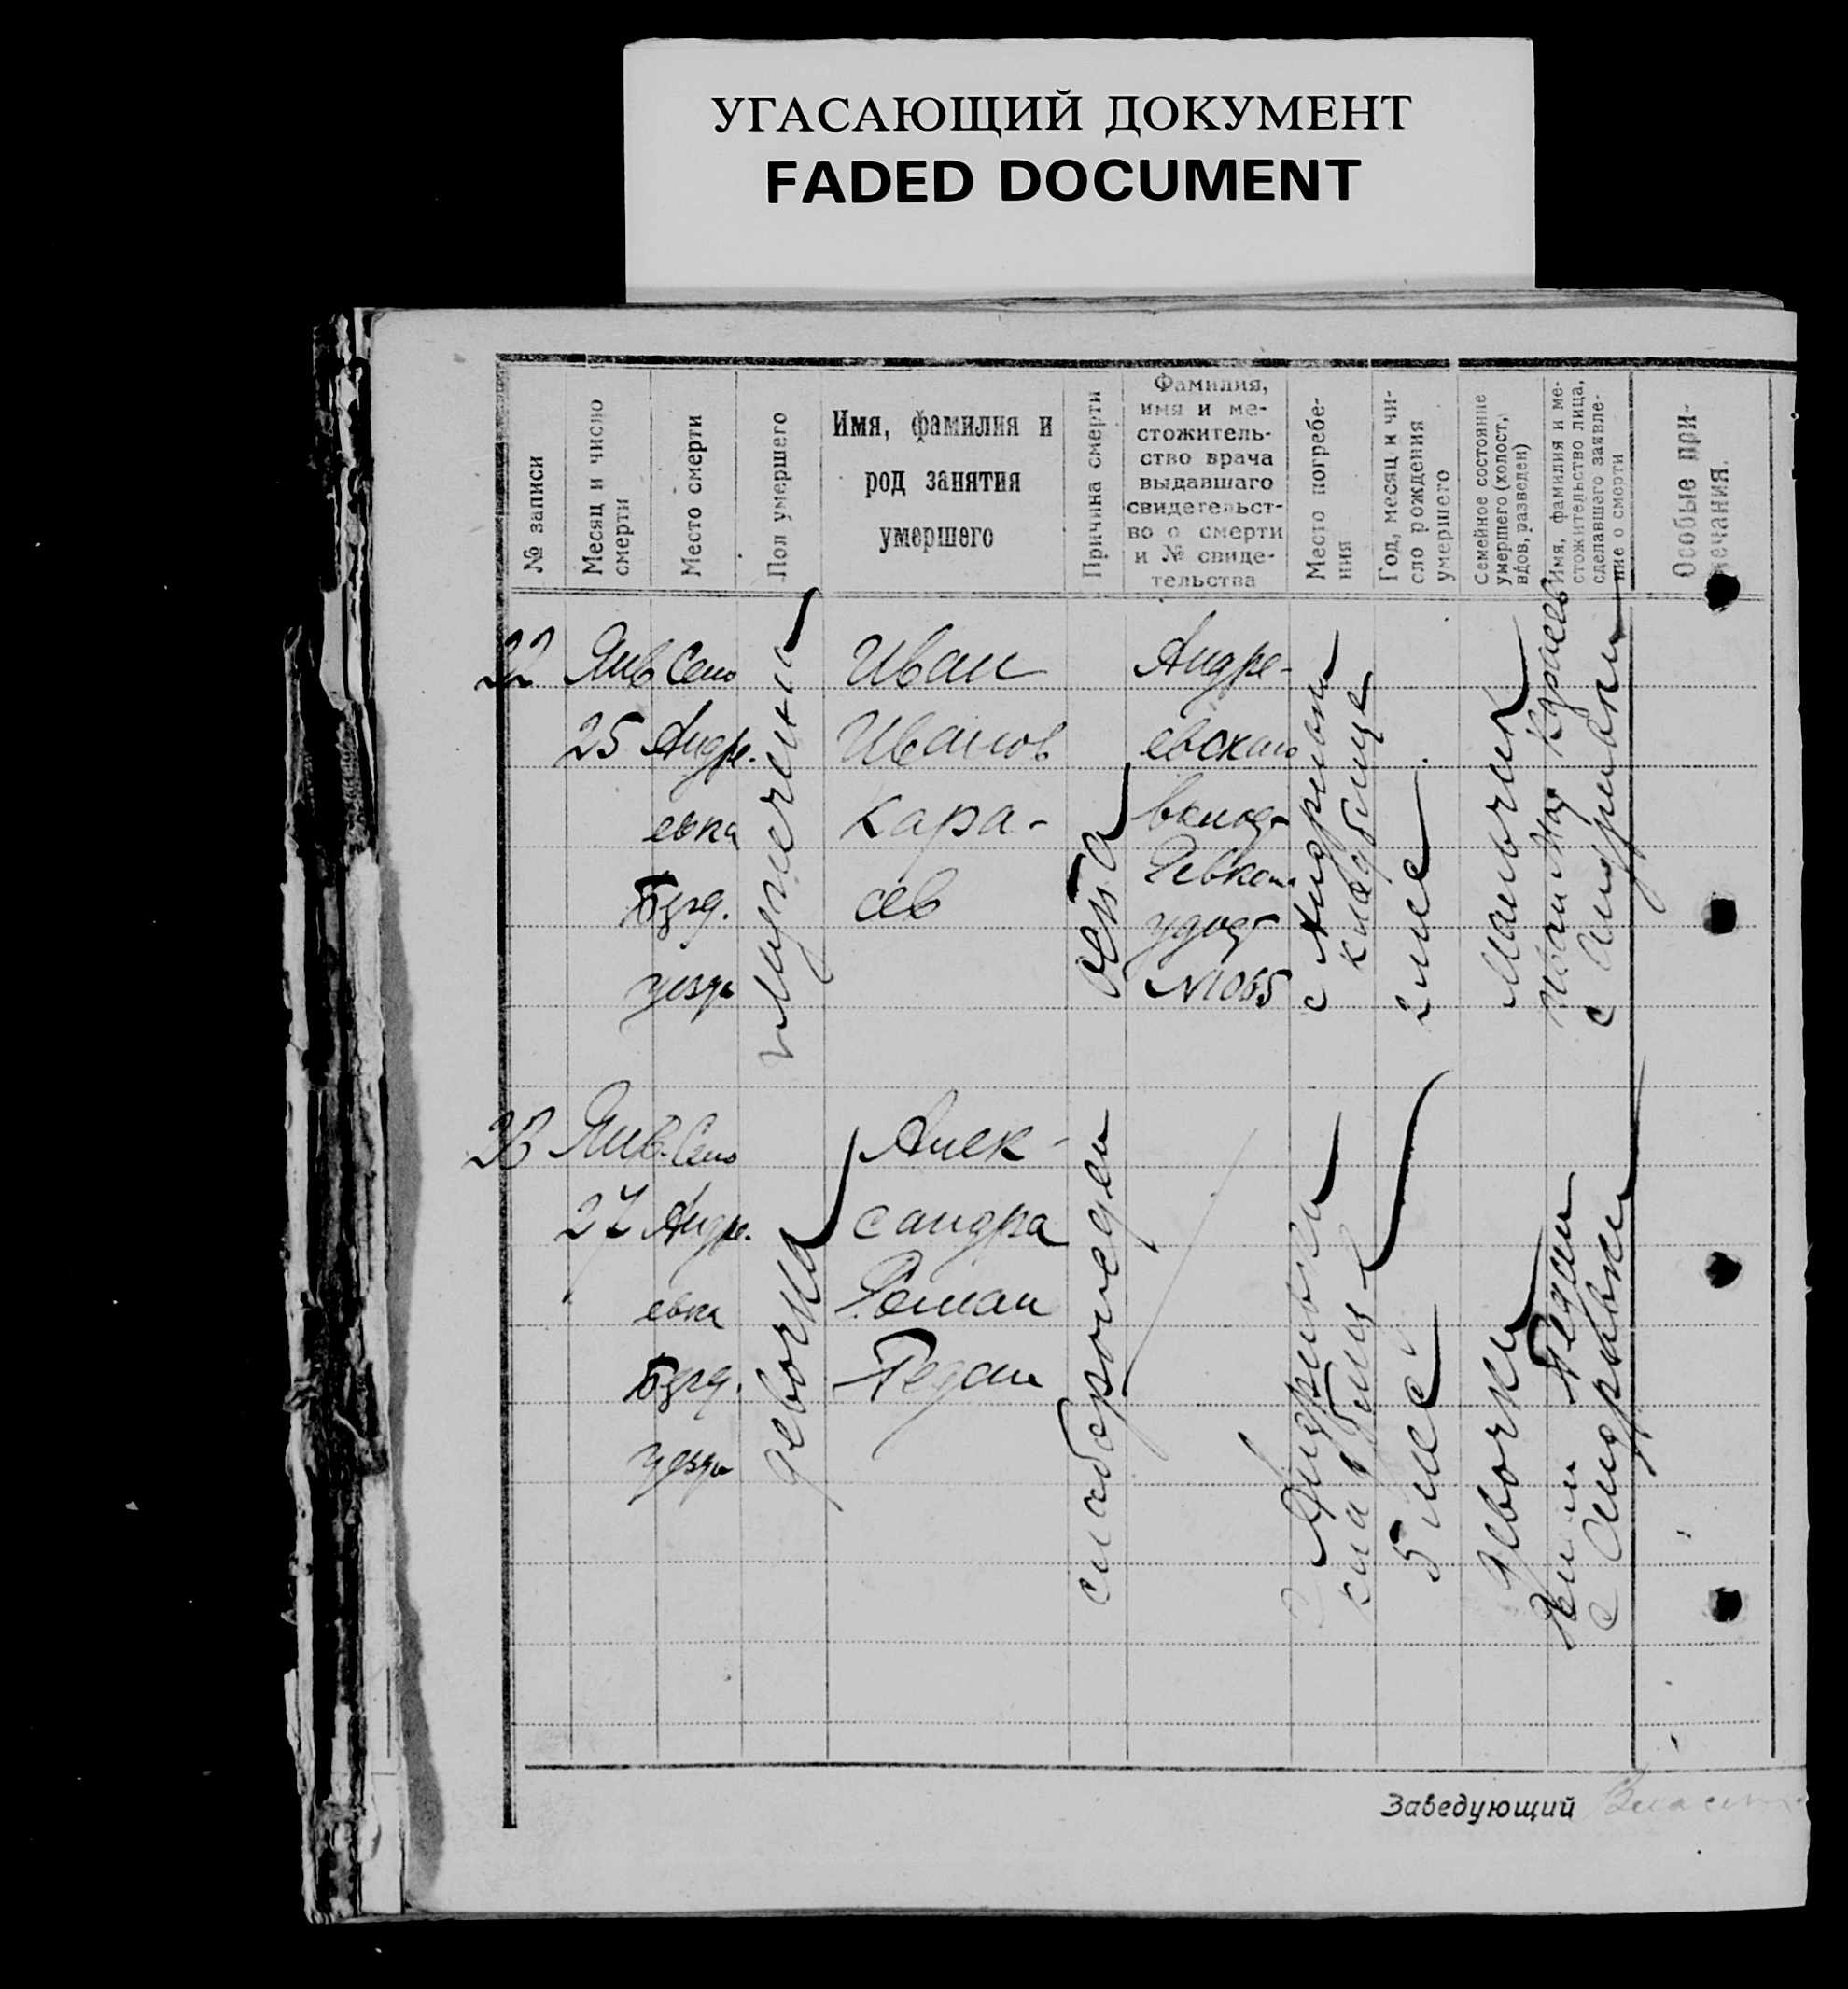 УГАСАЮЩИЙ ДОКУМЕНТ
FADED DOCUMENT
№ записи
Месяц и число
смерти
Место смерти
Пол умершего
Имя, фамилия и
род занятия
умершего
Причина смерти
Фамилия,
имя и ме-
стожитель-
ство врача
выдавшаго
свидетельст-
во о смерти
и № свиде-
тельства
Место погребе-
ния
Год, месяц и чи-
сло рождения
умершего
Семейное состояние
умершего (холост,
вдов, разведен)
Имя, фамилия и ме-
стожительство лица,
сделавшего заявле-
ние о смерти
Особые при-
мечания.
22
Янв
25
Село
Андре-
евка
Бузд.
уезда
Иван
Иванов
Кара-
сев
оспа
Андре-
евского
волод
Ревком
удост
№1065
с Андреевки
кладбище
2 мес
Мальчик
Иван Карасев
с Андреевки
23
Янв.
27
Село
Андре.
евка
Бузд.
уезда
девочка
Алек-
сандра
Роман
Редган
слаборожден
Андреевки
кладбище
5 мес
девочка
с Андреевки
Заведующий